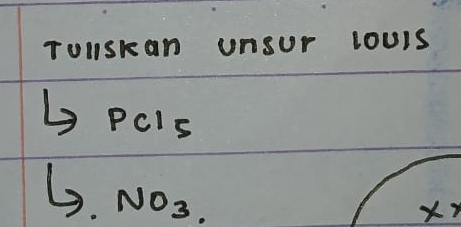 Tuliskan unsur louis
↳ PCl5
↳. NO3.
xx